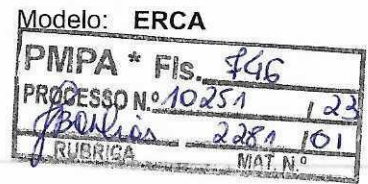 Modelo: ERCA
PMPA * Fls. 746
PROCESSO N.º 10251 / 23
2281 / 01
RUBRICA MAT. N.º